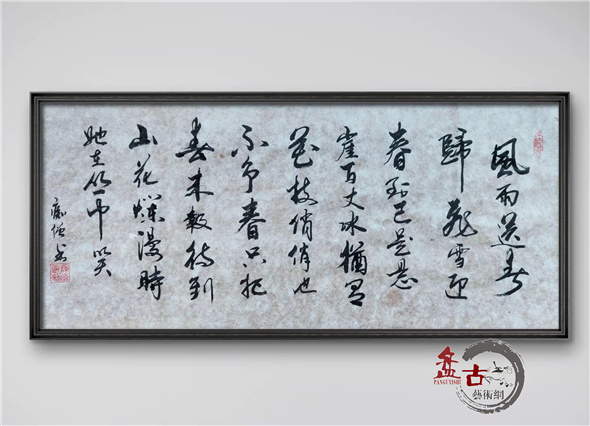 風雨送春
歸飛雪迎
春到已是悬
崖百丈冰猶有
花枝俏俏也
不争春只把
春来報待到
山花爛漫時
她在丛中笑
书
盘古
PANGUYISHU
藝術網